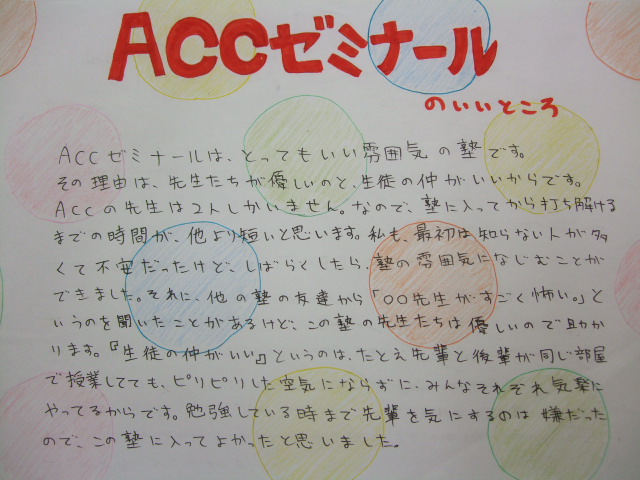 ACCゼミナール
のいいところ
ACCゼミナールは、とってもいい雰囲気の塾です。
その理由は、先生たちが優しいのと、生徒の仲がいいからです。
ACCの先生は2人しかいません。なので、塾に入ってから打ち解ける
までの時間が、他より短いと思います。私も、最初は知らない人が多
くて不安だったけど、しばらくしたら、塾の雰囲気になじむことが
できました。それに、他の塾の友達から「〇〇先生がすごく怖い。」と
いうのを聞いたことがあるけど、この塾の先生たちは優しいので助か
ります。『生徒の仲がいい』というのは、たとえ先輩と後輩が同じ部屋
で授業してても、ピリピリした空気にならずに、みんなそれぞれ気楽に
やってるからです。勉強している時まで先輩を気にするのは嫌だった
ので、この塾に入ってよかったと思いました。